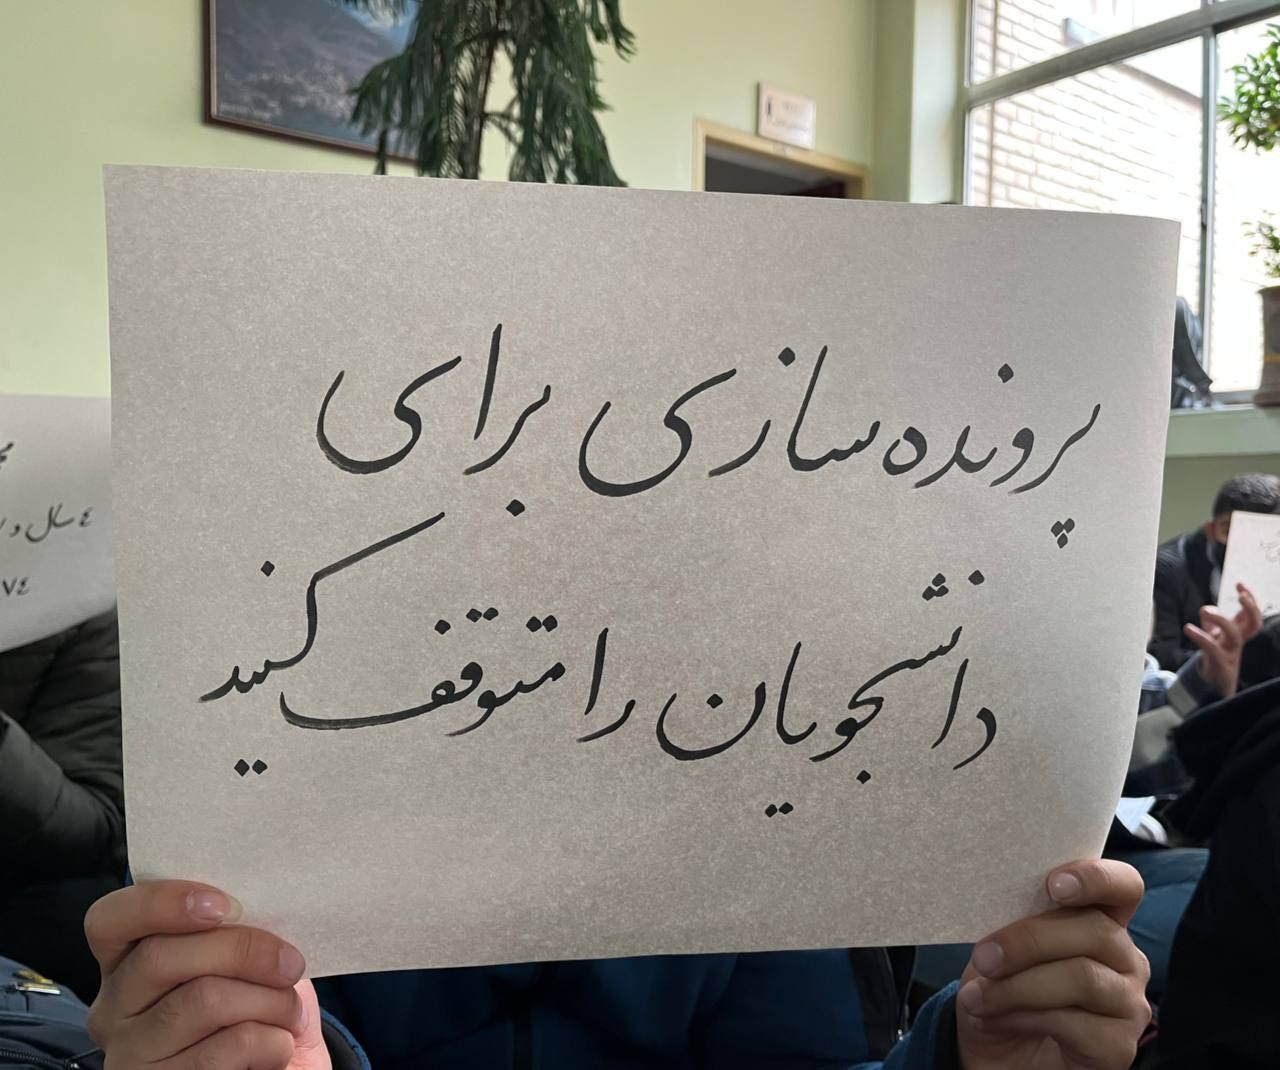 پرونده‌سازی برای
دانشجویان را متوقف کنید
٤ سال و
٧٤